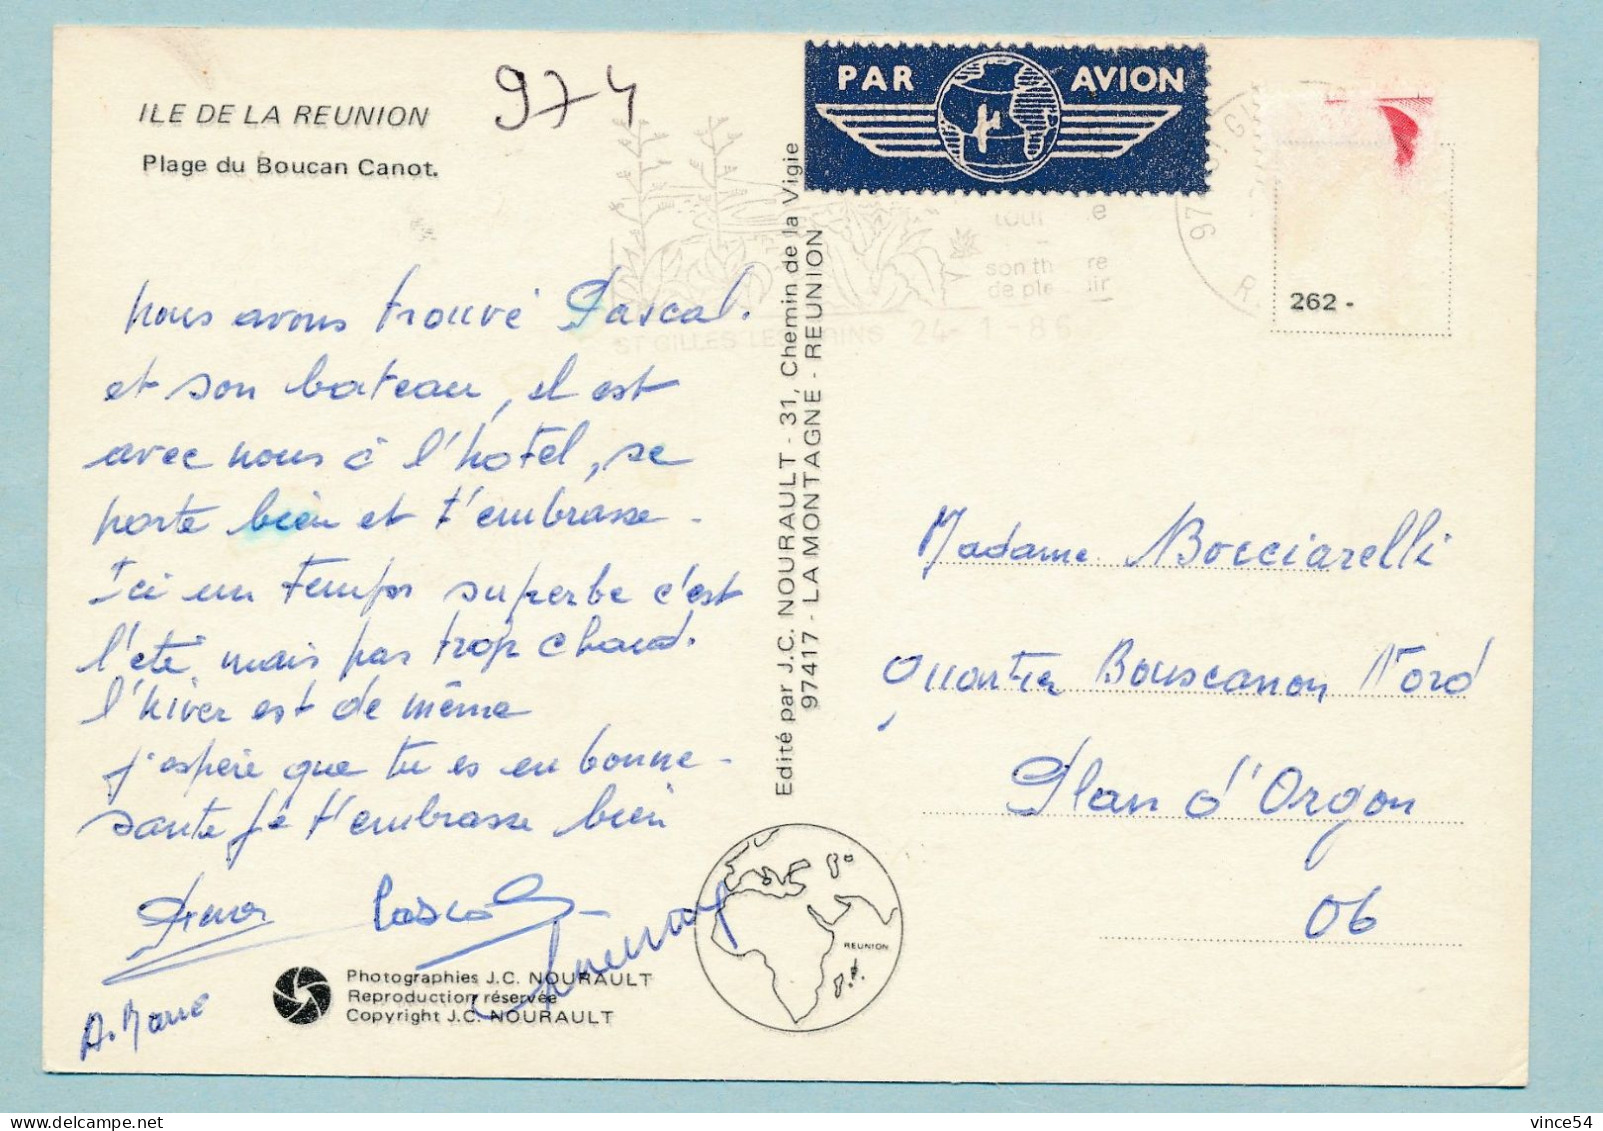 ILE DE LA REUNION
Plage du Boucan Canot.
974
PAR AVION
son
de
ST GILLES LES BAINS 24-1-86
R.
262 -
nous avons trouvé Pascal.
et son bateau, il est
avec nous à l'hotel, se
porte bien et t'embrasse -
Ici un temps superbe c'est
l'été, mais pas trop chaud.
l'hiver est de même
j'espère que tu es en bonne -
sante je t'embrasse bien
Pascal
Photographies J.C. NOURAULT
Reproduction réservée
Copyright J.C. NOURAULT
Edité par J.C. NOURAULT - 31, Chemin de la Vigie
97417 - LA MONTAGNE - REUNION
REUNION
Madame Bocciarelli
Quartier Bouscanon Nord
Plan d'Orgon
06
delcampe.net
vince54